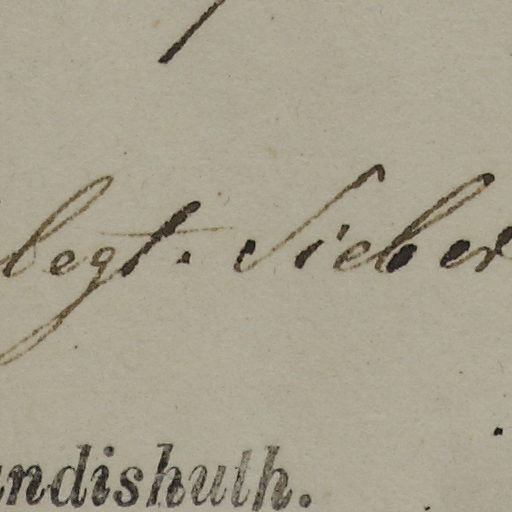 legt. Sieber
ndishuth.